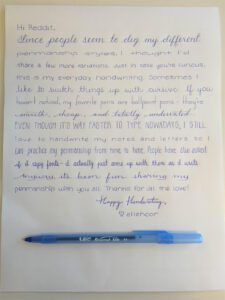 Hi Reddit,
Since people seem to dig my different
penmanship styles, I thought I'd
share a few more variations. Just in case you're curious,
this is my everyday handwriting. Sometimes I
like to switch things up with cursive. If you
haven't noticed, my favorite pens are ballpoint pens - they're
smooth, cheap, and totally underrated.
EVEN THOUGH IT'S WAY FASTER TO TYPE NOWADAYS, I STILL
love to handwrite my notes and letters so I
can practice my penmanship from time to time. People have also asked
if I copy fonts - I actually just come up with them as I write.
Anyway, it's been fun sharing my
penmanship with you all. Thanks for all the love!
Happy Handwriting,
BIC